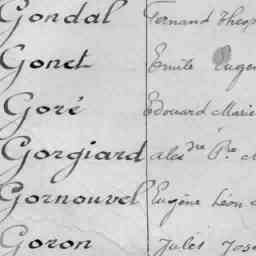 Gondal Fernand Théop
Gonet Emile Eugèn
Goré Edouard Marie
Gorgiard alex dre Pre M
Gornouvel Eugène Léon
Goron Jules Jose